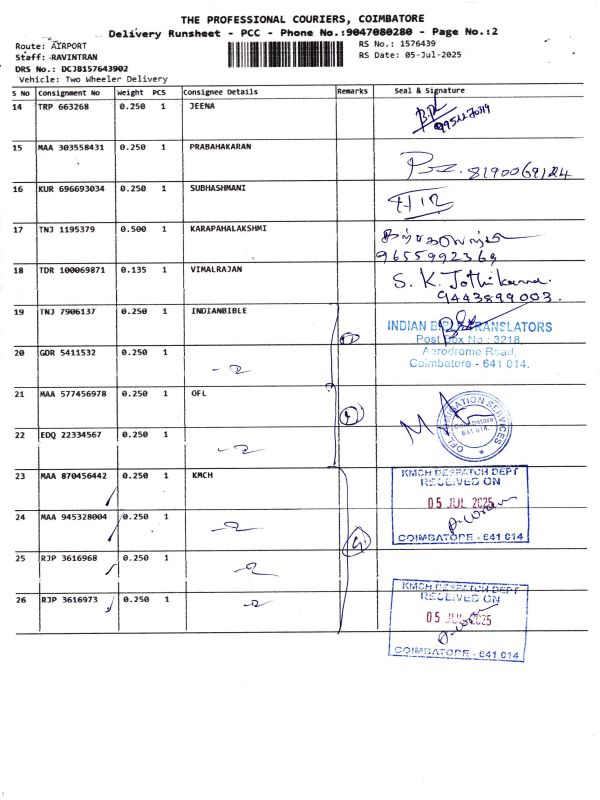 THE PROFESSIONAL COURIERS, COIMBATORE
Delivery Runsheet - PCC - Phone No.:9047080280 - Page No.:2
Route: AIRPORT
RS No.: 1576439
Staff: RAVINTRAN
RS Date: 05-Jul-2025
DRS No.: DCJB157643902
Vehicle: Two Wheeler Delivery
S No Consignment No Weight PCS Consignee Details Remarks Seal & Signature
14 TRP 663268 0.250 1 JEENA
15 MAA 303558431 0.250 1 PRABAHAKARAN
8190069124
16 KUR 696693034 0.250 1 SUBHASHMANI
17 TNJ 1195379 0.500 1 KARAPAHALAKSHMI
9655992369
18 TDR 100069871 0.135 1 VIMALRAJAN
S. K. Jothikumar
9443899003.
19 TNJ 7906137 0.250 1 INDIANBIBLE
INDIAN TRANSLATORS
Post Box No : 3218,
Aerodrome Road,
Coimbatore - 641 014.
20 GDR 5411532 0.250 1
21 MAA 577456978 0.250 1 OFL
Coimbatore
641 014.
22 EDQ 22334567 0.250 1
23 MAA 870456442 0.250 1 KMCH
KMCH DESPATCH DEPT
RECEIVED ON
05 JUL 2025
COIMBATORE - 641 014
24 MAA 945328004 0.250 1
25 RJP 3616968 0.250 1
26 RJP 3616973 0.250 1
KMCH DESPATCH DEPT
RECEIVED ON
05 JUL 2025
COIMBATORE - 641 014